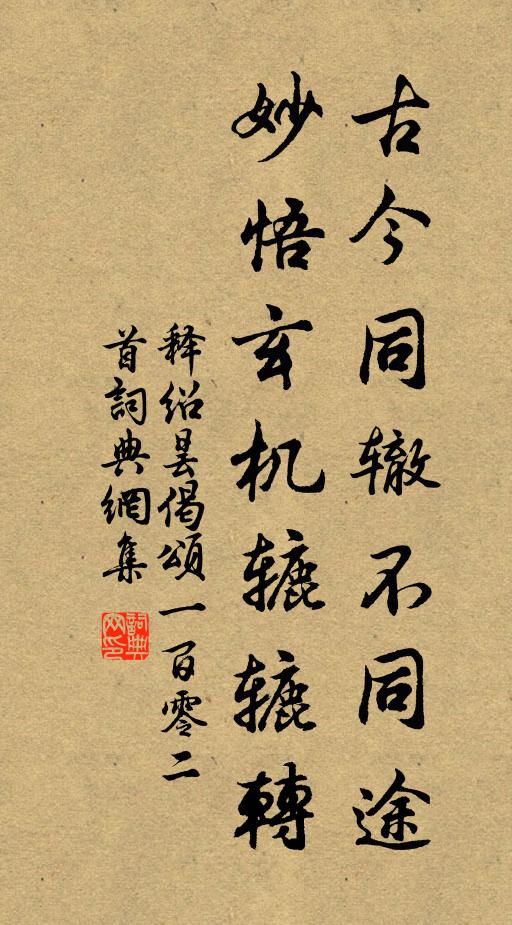 古今同辙不同途
妙悟玄机辘辘轉
释绍昙偈頌一百零二
首詞典網集
詞典
网印